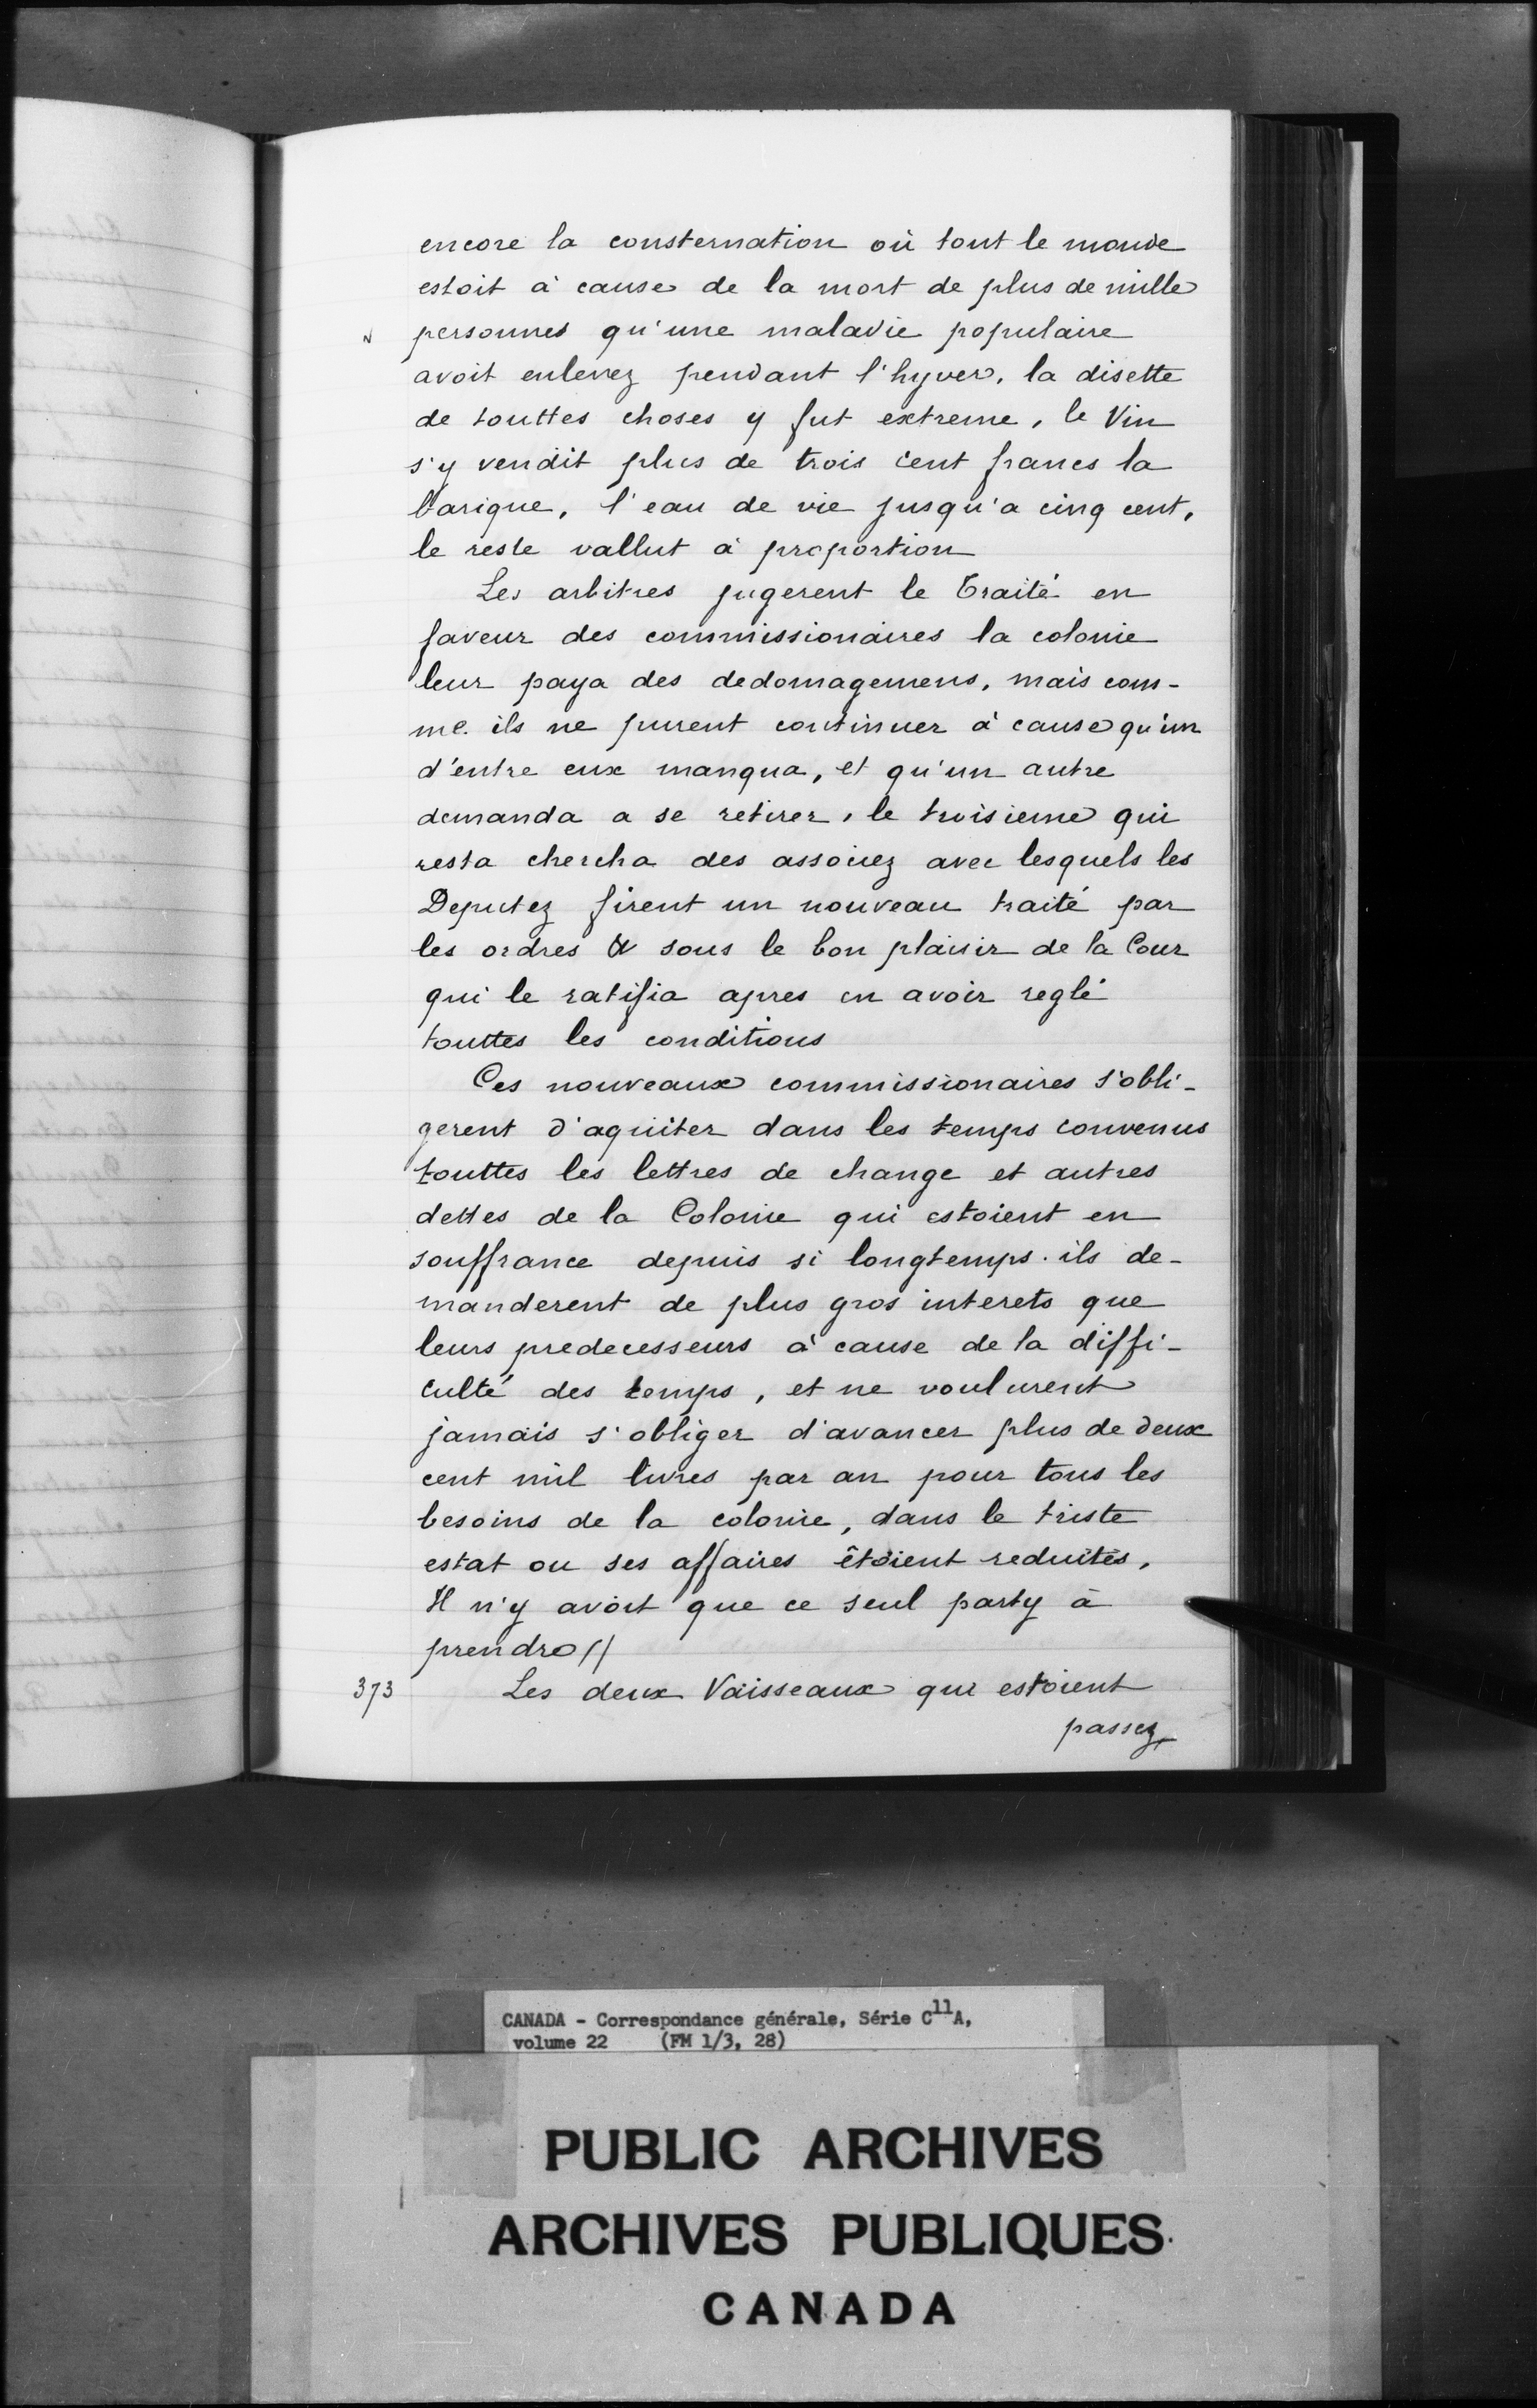 encore la consternation où tout le monde
estoit à cause de la mort de plus de mille
personnes qu'une maladie populaire
avoit enlevez pendant l'hyver, la disette
de touttes choses y fut extreme, le Vin
s'y vendit plus de trois cent francs la
barique, l'eau de vie jusqu'a cinq cent,
le reste vallut à proportion
Les arbitres jugerent le Traité en
faveur des commissionaires la colonie
leur paya des dedomagemens, mais com-
me ils ne purent continuer à cause qu'un
d'entre eux manqua, et qu'un autre
demanda a se retirer, le troisieme qui
resta chercha des associez avec lesquels les
Deputez firent un nouveau traité par
les ordres & sous le bon plaisir de la Cour
qui le ratifia apres en avoir reglé
touttes les conditions
Ces nouveaux commissionaires s'obli-
gerent d'aquiter dans les temps convenus
touttes les lettres de change et autres
dettes de la Colonie qui estoient en
souffrance depuis si longtemps. ils de-
manderent de plus gros interets que
leurs predecesseurs à cause de la diffi-
culté des temps, et ne voulurent
jamais s'obliger d'avancer plus de deux
cent mil livres par an pour tous les
besoins de la colonie, dans le triste
estat ou ses affaires êtoient reduites,
Il n'y avoit que ce seul party à
prendre //
373 Les deux Vaisseaux qui estoient
passez
CANADA - Correspondance générale, Série C11A,
volume 22 (FM 1/3, 28)
PUBLIC ARCHIVES
ARCHIVES PUBLIQUES
CANADA